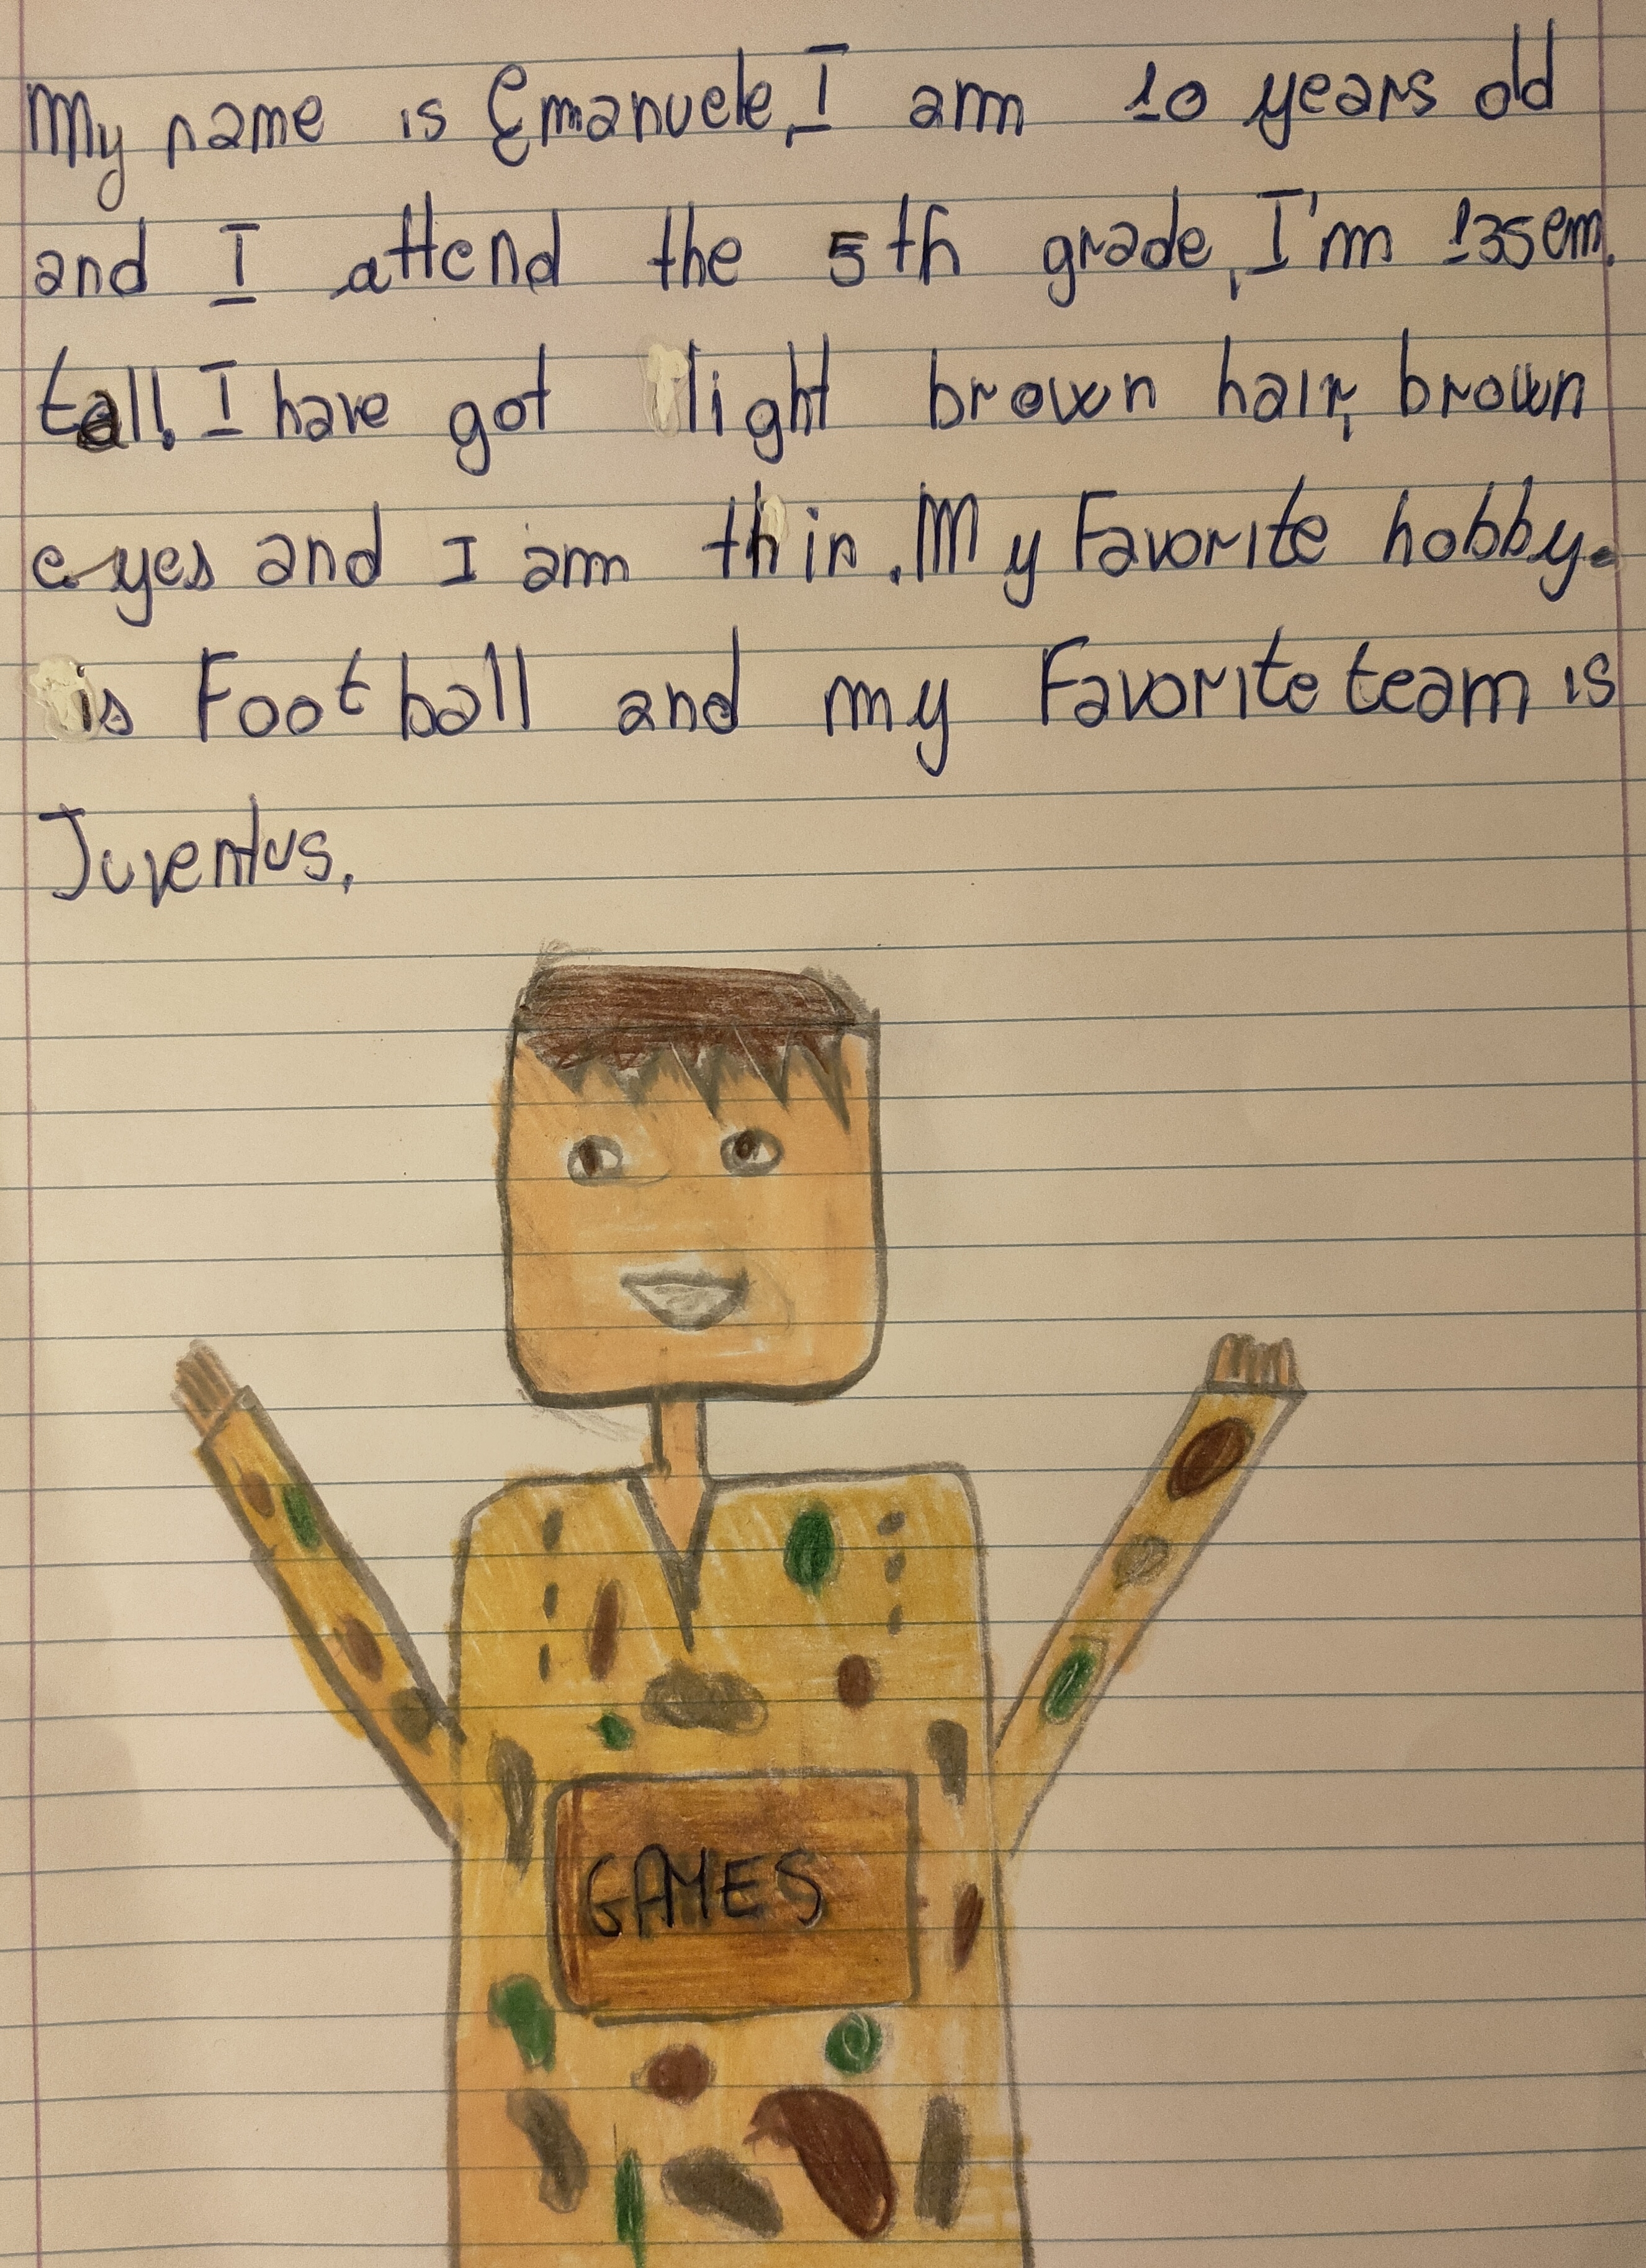 My name is Emanuele, I am 10 years old
and I attend the 5th grade, I'm 135 cm.
tall. I have got light brown hair, brown
eyes and I am thin. My Favorite hobby.
is Foot ball and my Favorite team is
Juventus.
GAMES